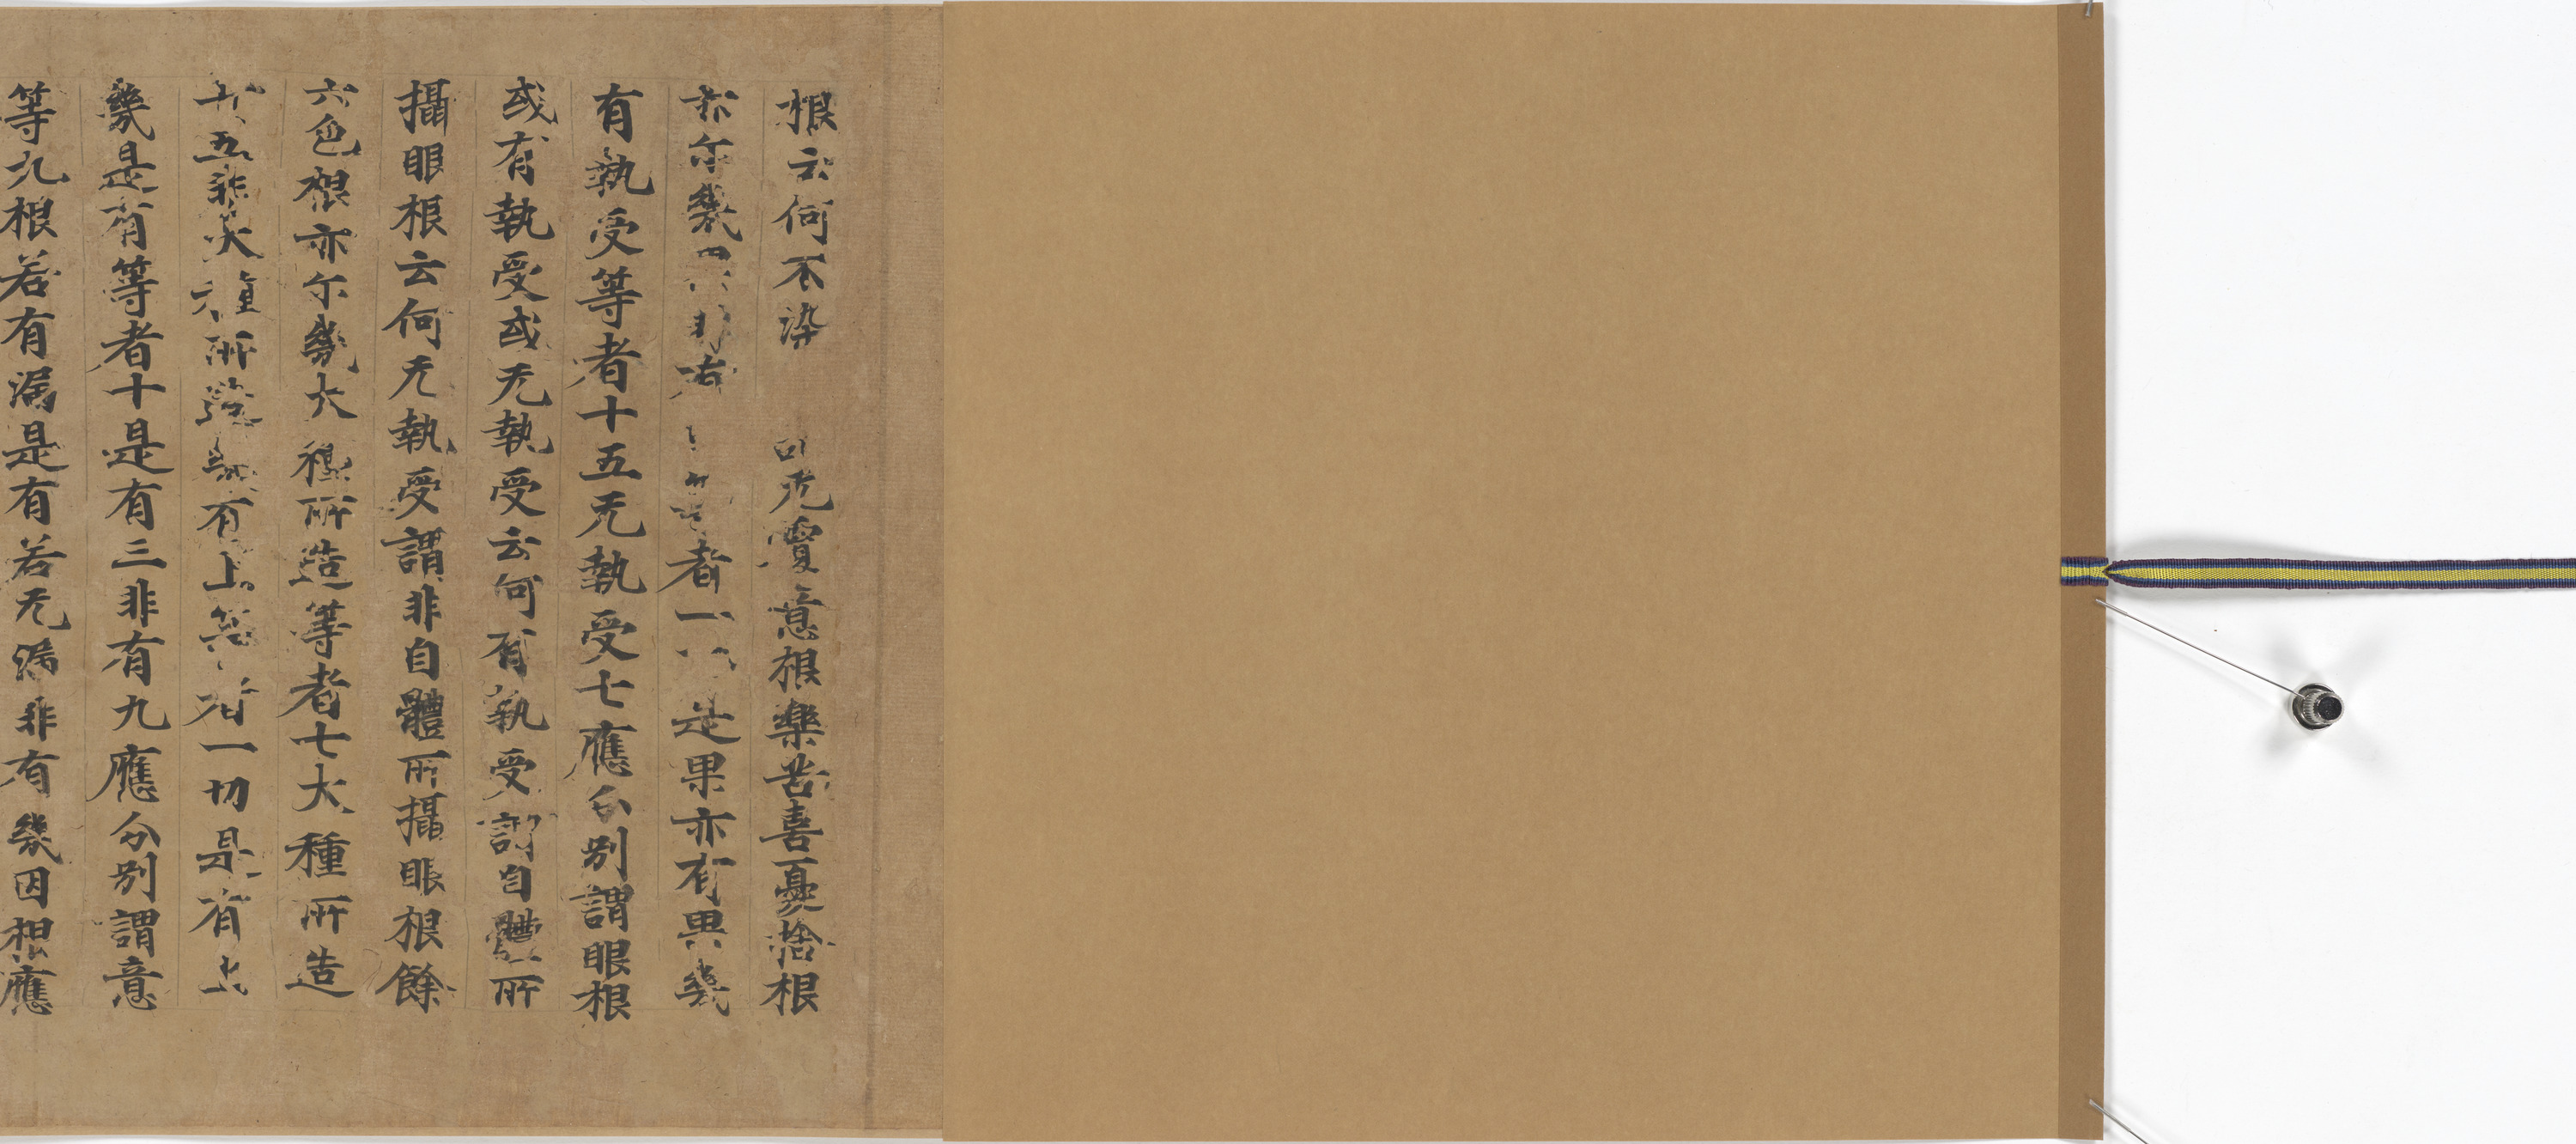 根云何不染无覆意根樂苦喜憂捨根
亦尓幾有者一是果亦有果幾
有執受等者十五无執受七應分別謂眼根
或有執受或无執受云何有執受謂自體所
攝眼根云何无執受謂非自體所攝眼根餘
六色根亦尓幾大種所造等者七大種所造
十五非大種所造幾有上等者一切是有上
幾是有等者十是有三非有九應分別謂意
等九根若有漏是有若无漏非有幾因相應